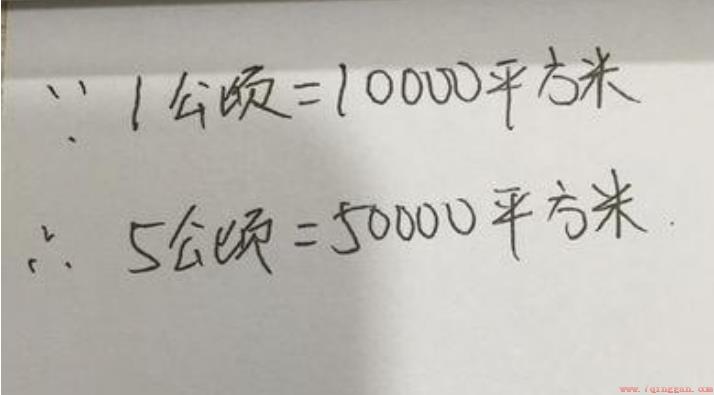 ∵ 1公顷=10000平方米
∴ 5公顷=50000平方米.
www.7qinggan.com